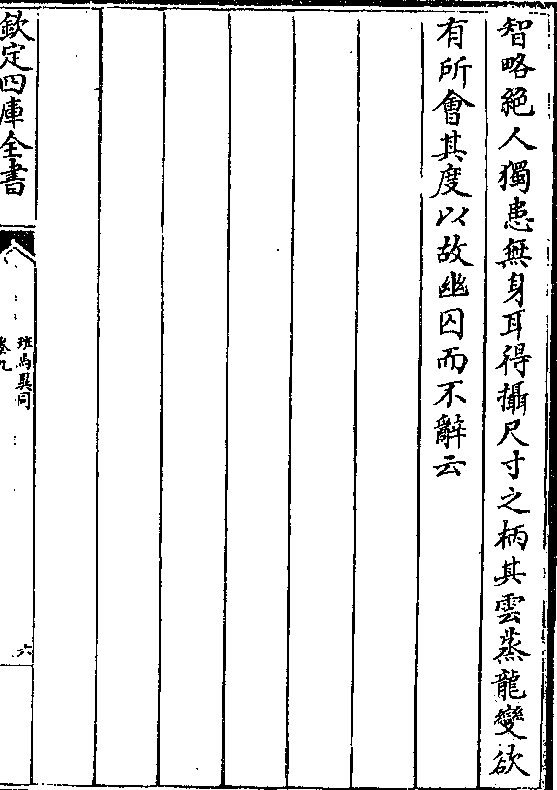 智略絶人獨患無身耳得攝尺寸之柄其雲蒸龍變欲
有所會其度以故幽囚而不辭云
欽定四庫全書
班馬異同
卷九
六